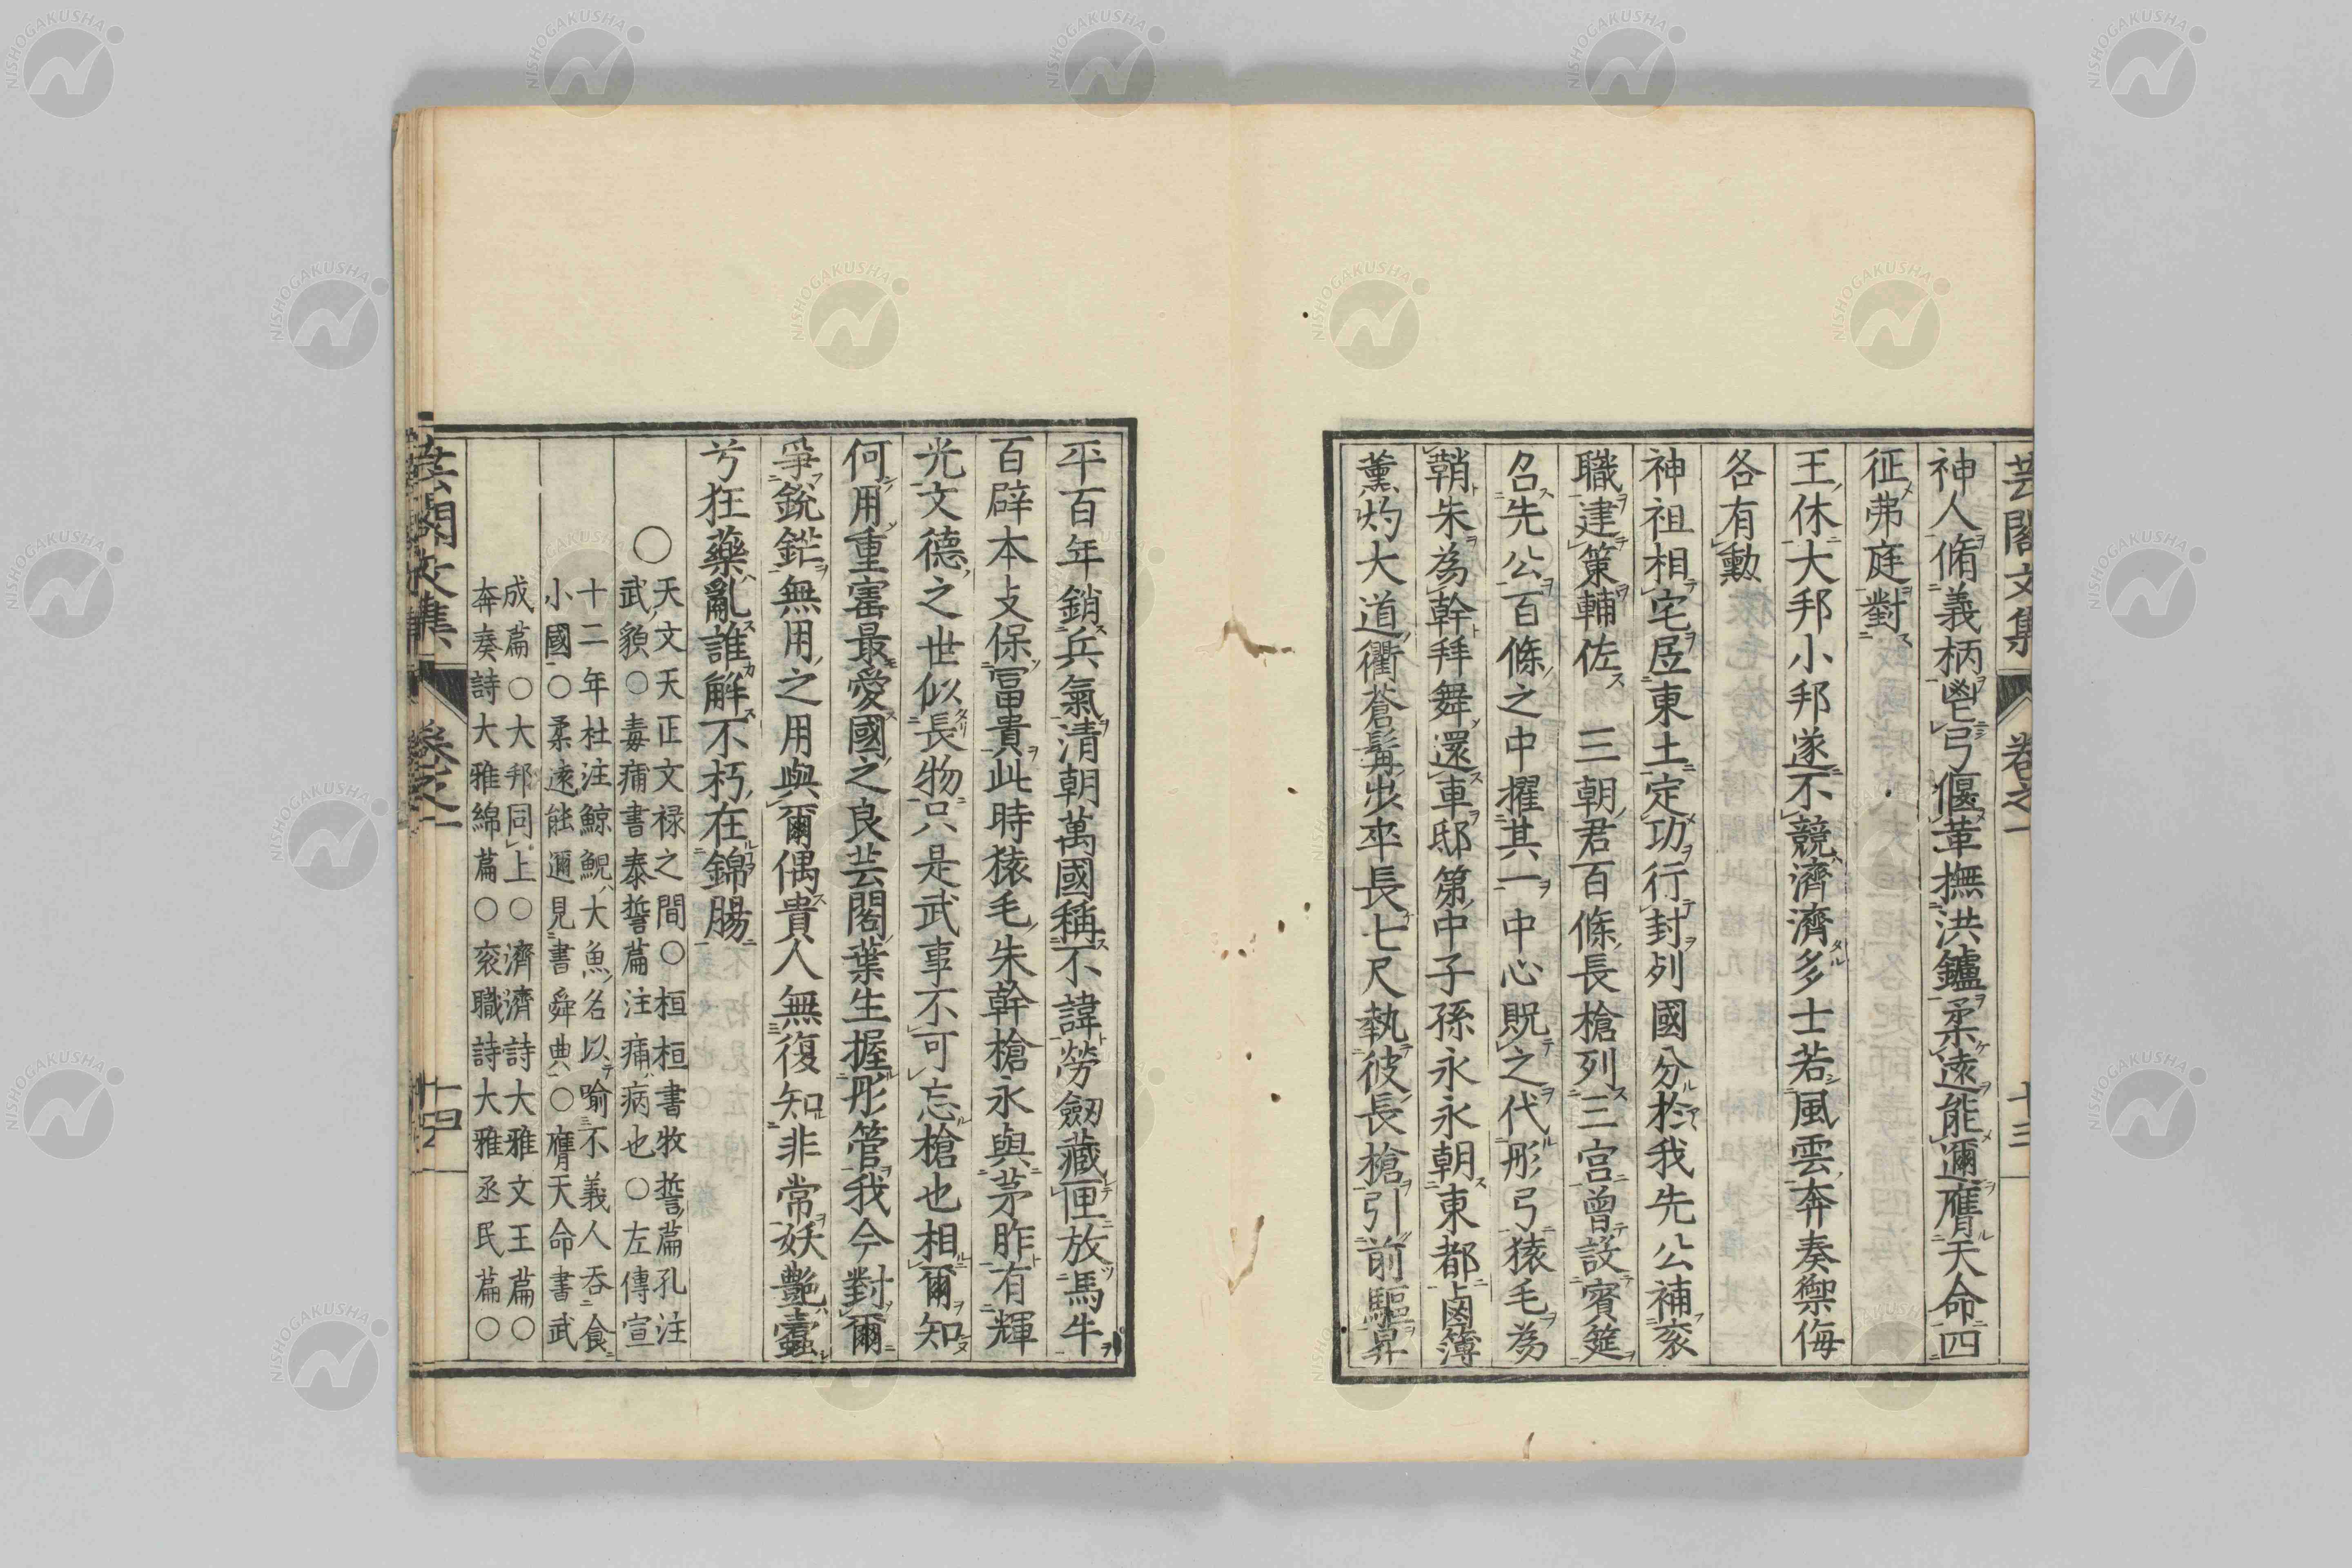 芸閣文集 卷之一 十三
神人脩義柄鬯弓偃革撫洪鑪柔遠能邇膺天命四
征弗庭對
王休大邦小邦遂不競濟濟多士若風雲奔奏禦侮
各有勳
神祖相宅居東土定功行封列國分於我先公補袞
職建策輔佐三朝君百條長槍列三宮曾設賓筵
召先公百條之中擢其一中心貺之代彤弓猿毛為
鞘朱為幹拜舞還車邸第中子孫永永朝東都鹵簿
薰灼大道衢蒼髯出卒長七尺執彼長槍引前驅昇
平百年銷兵氣清朝萬國稱不諱勞劔藏匣放馬牛
百辟本支保富貴此時猿毛朱幹槍永與茅胙有輝
光文德之世似長物只是武事不可忘槍也相爾知
何用重寤最愛國之良芸閣葉生握彤管我今對爾
爭銳鋩無用之用與爾偶貴人無復知非常妖艷蠹
兮狂藥亂誰解不朽在錦腸
○天文天正文禄之間○桓桓書牧誓篇孔注
武貌○毒痡書泰誓篇注痡病也○左傳宣
十二年杜注鯨鯢大魚名以喻不義人吞食
小國○柔遠能邇見書舜典○膺天命書武
成篇○大邦同上○濟濟詩大雅文王篇○
奔奏詩大雅綿篇○袞職詩大雅丞民篇○
芸閣文集 卷之一 十四
NISHOGAKUSHA